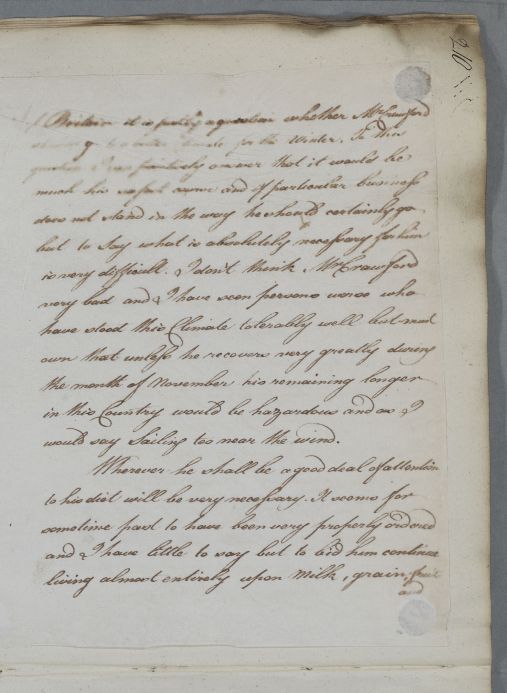 210
Britain it is justly a question whether Mr Crawford
should go to a milder Climate for the Winter. To this
question I can positively answer that it would be
much his safest course and if particular business
does not stand in the way he should certainly go
but to say what is absolutely necessary for him
is very difficult. I don't think Mr Crawford
very bad and I have seen persons worse who
have stood this Climate tolerably well but must
own that unless he recovers very greatly during
the month of November his remaining longer
in this Country would be hazardous and as I
would say Sailing too near the wind.
Wherever he shall be a good deal of attention
to his diet will be very necessary. It seems for
sometime past to have been very properly ordered
and I have little to say but to bid him continue
living almost entirely upon Milk, grain, fruit
and